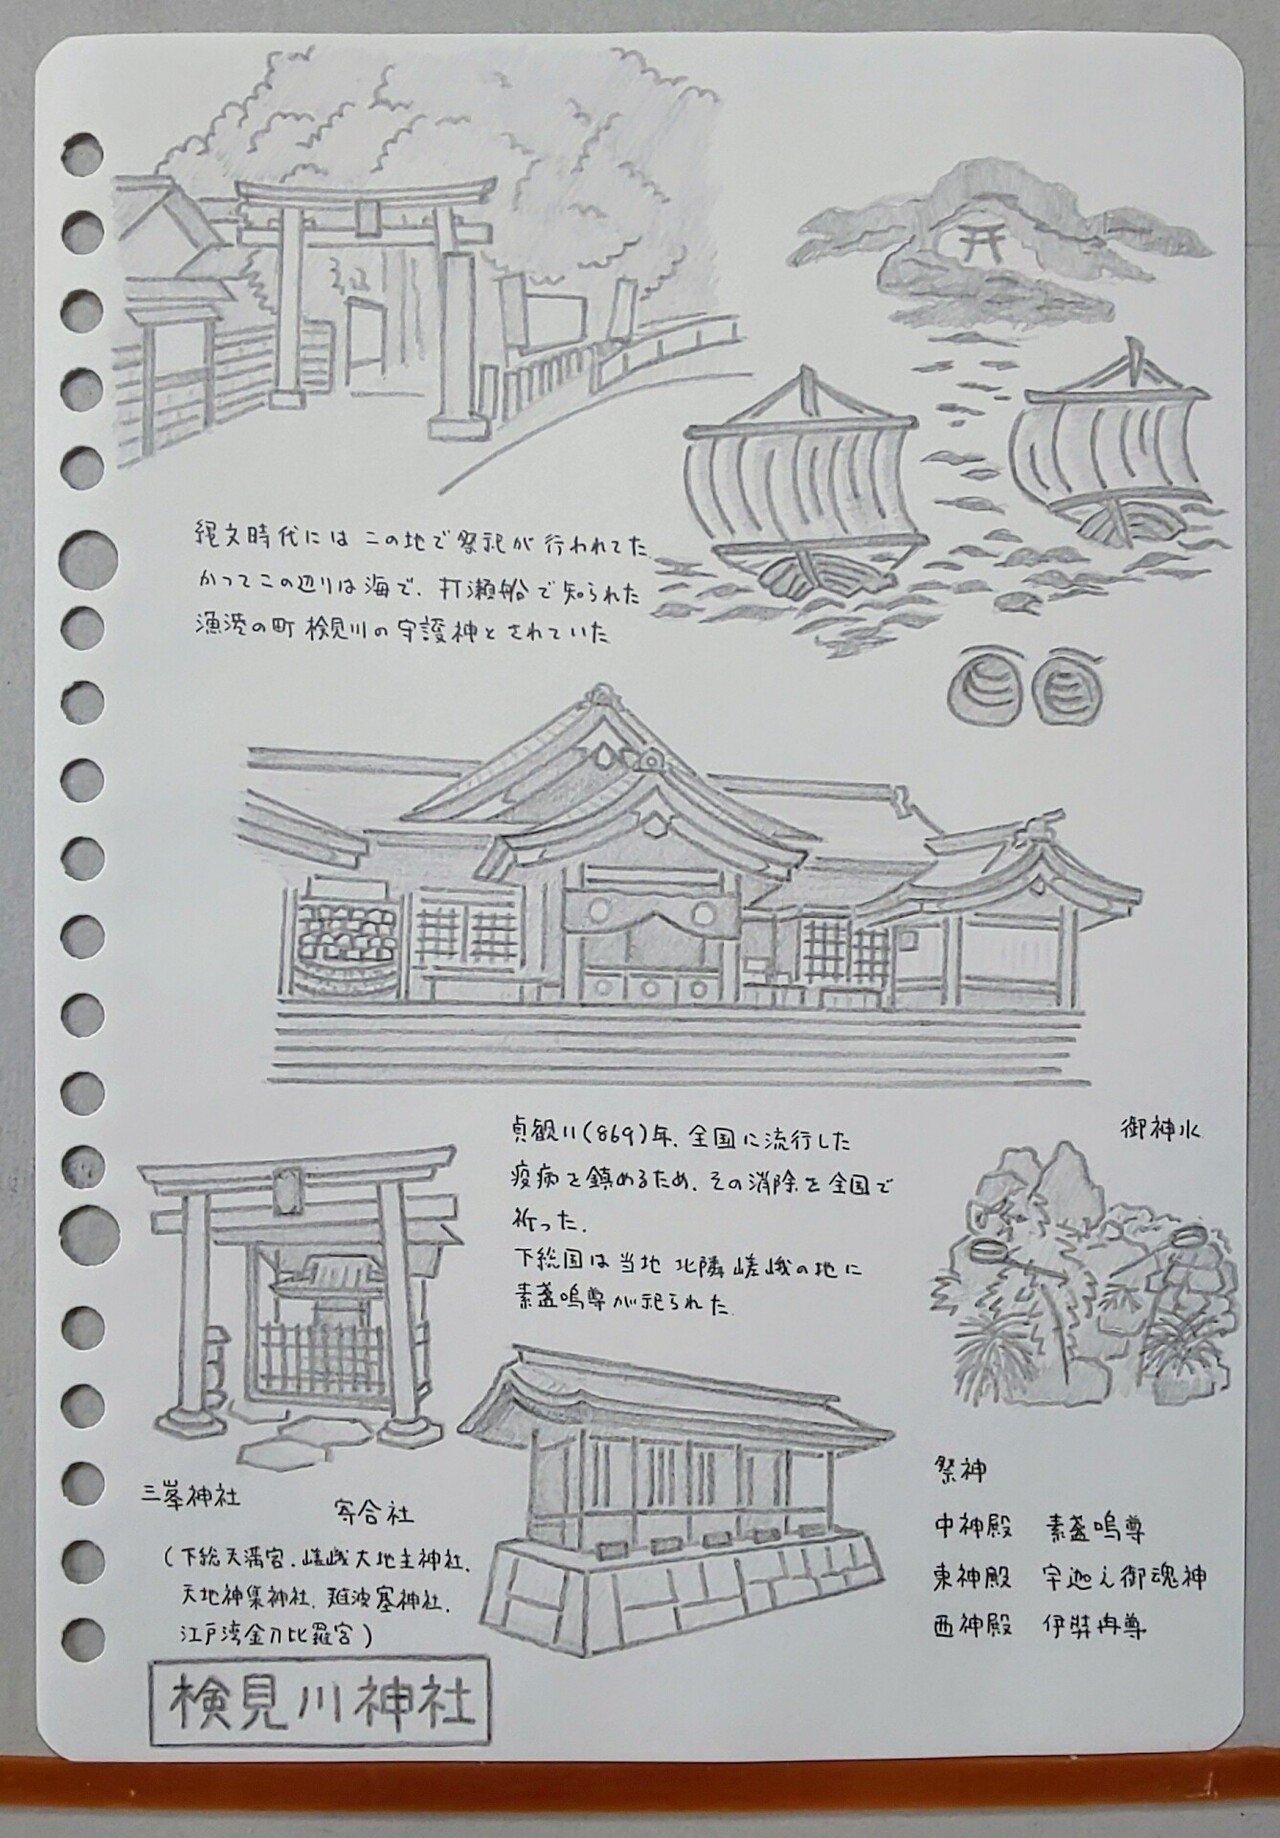 縄文時代にはこの地で祭祀が行われてた
かつてこの辺りは海で、打瀬船で知られた
漁港の町検見川の守護神とされていた
貞観11(869)年、全国に流行した
疫病を鎮めるため、その消除を全国で
祈った。
下総国は当地北隣嵯峨の地に
素盞嗚尊が祀られた。
御神水
三峯神社
寄合社
(下総天満宮、嵯峨大地主神社、
天地神集神社、難波塞神社、
江戸湾金刀比羅宮)
祭神
中神殿 素盞嗚尊
東神殿 宇迦之御魂神
西神殿 伊弉冉尊
検見川神社